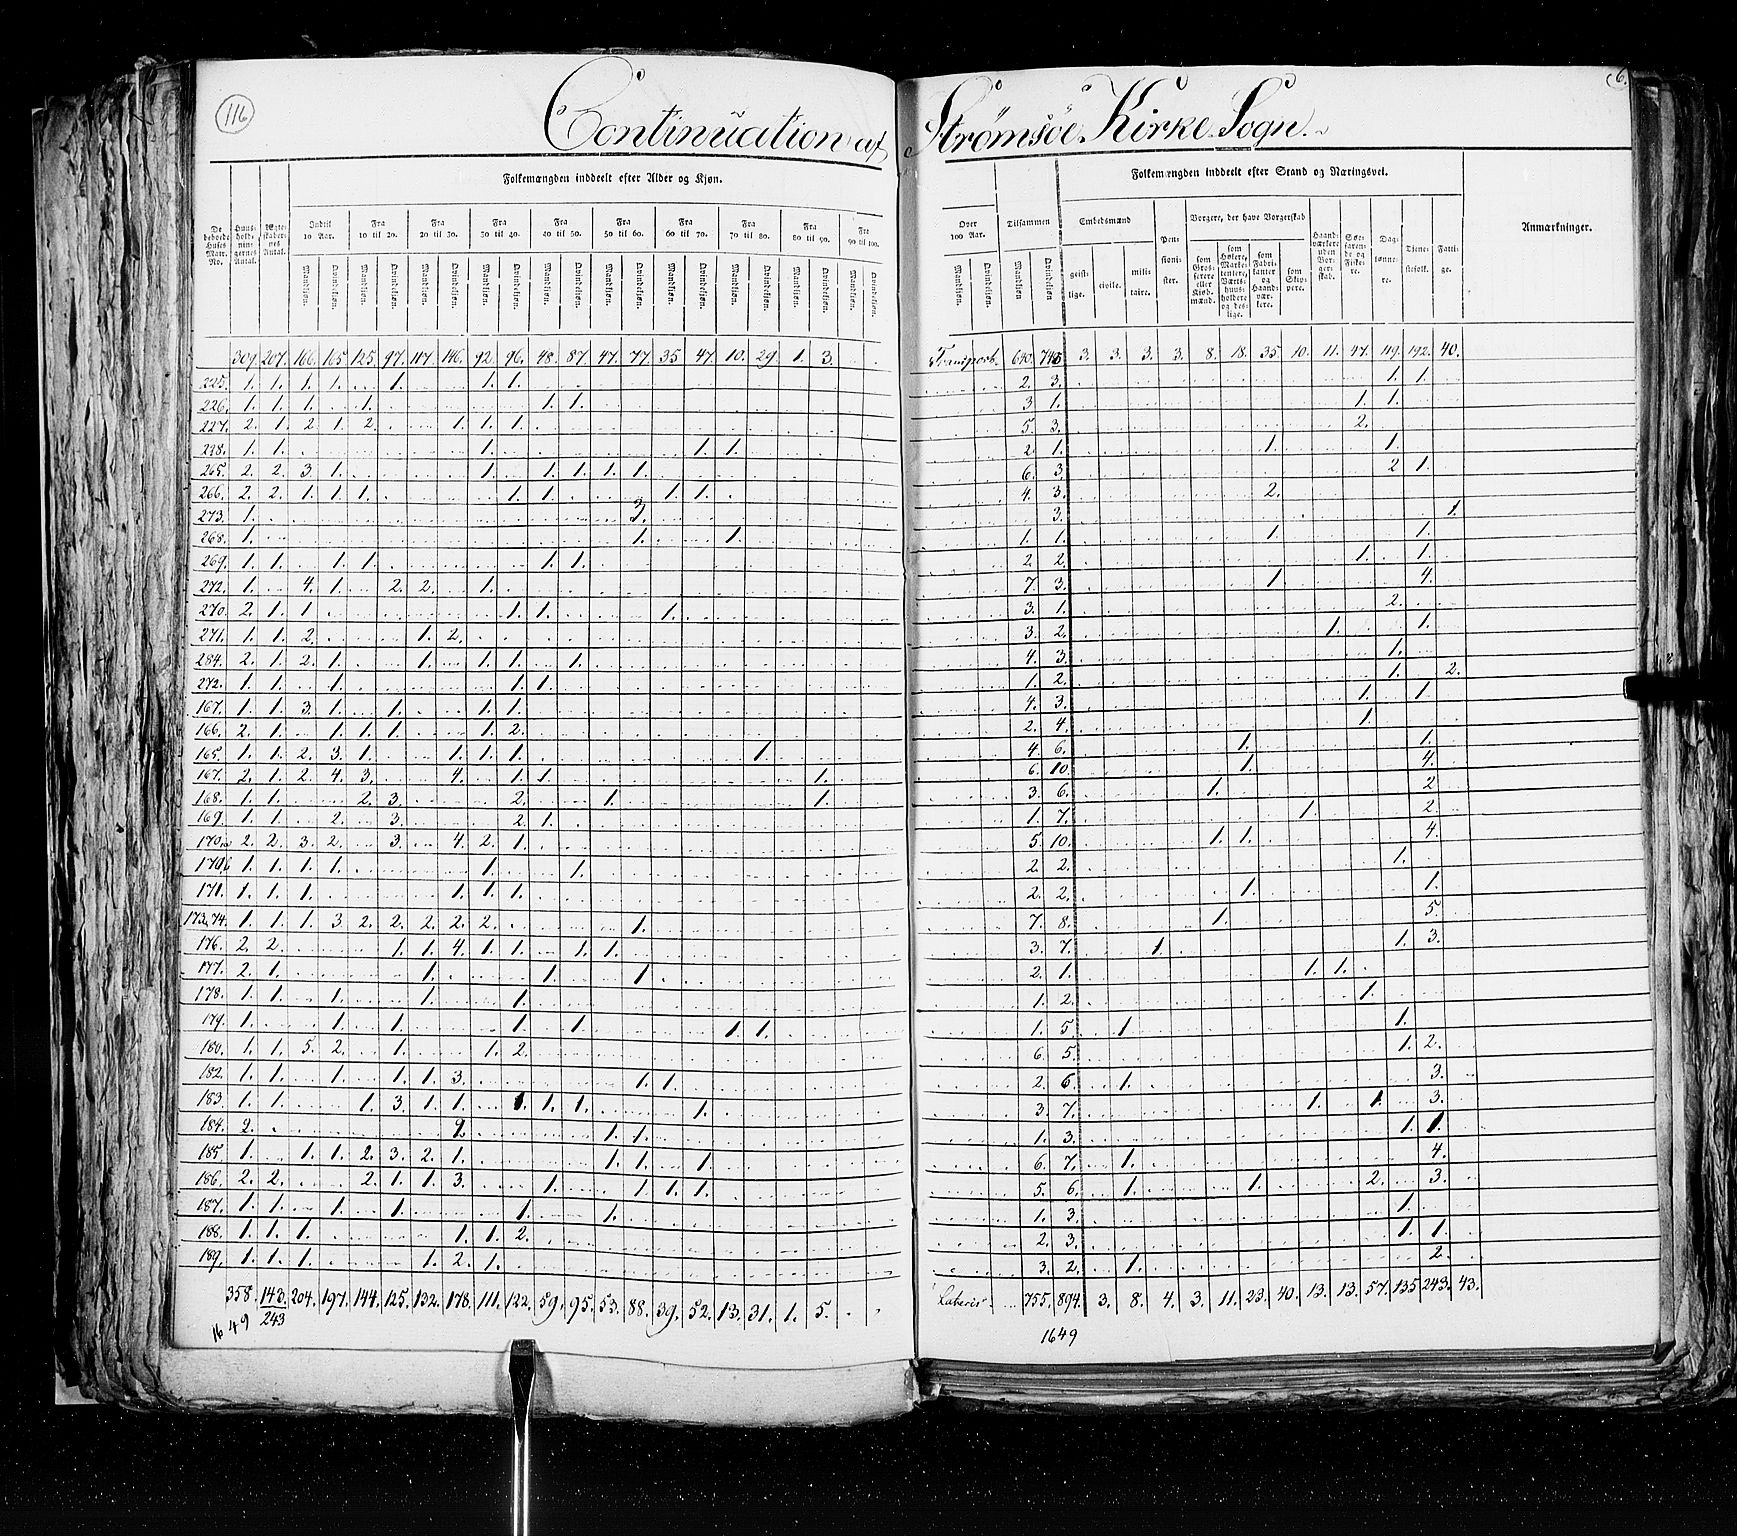 116
6.
Continuation af Strömsöe Kirke Sogn.
Folkemængden inddeelt efter Alder og Kjøn.
Folkemængden inddeelt efter Stand og Næringsvei.
Anmærkninger.
De beboede Huses Matr. No.
Huus-holdningernes Antal.
Ægteskabernes Antal.
Indtil 10 Aar.
Fra 10 til 20.
Fra 20 til 30.
Fra 30 til 40.
Fra 40 til 50.
Fra 50 til 60.
Fra 60 til 70.
Fra 70 til 80.
Fra 80 til 90.
Fra 90 til 100.
Over 100 Aar.
Tilsammen
Mandkjøn. Qvindekjøn.
Embedsmænd
geistlige. civile. militaire.
Pensionister.
Borgere, der have Borgerskab
som Grosserere eller Kjøbmænd.
som Høkere, Marketentere, Værtshuusholdere og deslige.
som Fabrikanter og Haandværkere.
som Skippere.
Haandværkere uden Borgerskab.
Søefarende og Fiskere.
Daglønnere.
Tjenestefolk.
Fattige.
309. 207. 166. 165. 125. 97. 107. 146. 92. 96. 48. 87. 47. 77. 35 47. 10. 29. 1. 3. Transport. 640. 745 3. 3. 3. 3. 8. 18. 35. 10. 11. 47. 119. 192. 40.
225. 1. 1. 1. 1. 1. 1. 1. 2. 3. 1. 1.
226. 1. 1. 1. 1. 1. 1. 3 1. 1. 1.
227. 2. 1. 2 1. 2. 1. 1. 1. 5. 3. 2.
228. 1. 1. 1. 1. 1. 2. 1. 1. 1.
265. 2. 2. 3 1. 1. 1. 1. 1. 1. 6. 3. 2 1.
266. 2. 2. 1. 1. 1. 1. 1. 1. 1. 4. 3. 2.
273. 1. 3. 3. 1.
268. 1. 1. 1. 1. 1. 1. 1.
269. 1. 1. 1. 1. 1. 1. 2. 2. 1. 1.
272. 1. 4. 1. 2. 2. 1. 7. 3. 1. 4.
270. 2. 1. 1. 1. 1. 1. 3. 1. 2.
271. 1. 1. 2. 1. 2. 3. 2. 1. 1.
284. 2. 1. 2. 1. 1. 1. 1. 1. 4. 3. 1.
272. 1. 1. 1. 1. 1. 1. 2. 1. 2.
167. 1. 1. 3. 1. 1. 1. 1. 4. 3. 1. 1.
166. 2. 1. 1. 1. 1. 1. 2. 2. 4. 1.
165. 1. 1. 2. 3. 1. 1. 1. 1. 1. 4. 6. 1. 1.
167. 2. 1. 2. 4. 3. 4. 1. 1. 1. 6. 10. 1. 4.
168. 1. 1. 2. 3. 2. 1. 1. 3. 6. 1. 2
169. 1. 1. 2. 3. 2. 1. 1. 7. 1. 2.
170.a 2. 2. 3. 2. 3. 4. 2. 1. 5. 10. 1. 1. 4.
170.b 1. 1. 1. 1. 1. 1. 2. 2. 1.
171. 1. 1. 1. 1. 1. 1. 2. 2. 1. 1.
173.74. 1. 1. 1. 3. 2. 2. 2. 2. 2. 1. 7. 8. 1. 5.
176. 2. 2. 1. 1. 4. 1. 1. 1. 1. 3. 7. 1. 1. 3.
177. 2. 1. 1. 1. 1. 2. 1. 1. 1.
178. 1. 1. 1. 1. 1. 1. 2. 1.
179. 1. 1. 1. 1. 1. 1. 1. 1. 5. 1. 1.
180. 1. 1. 5. 2. 1. 1. 2. 6. 5. 1. 2.
182. 1. 1. 1. 1. 1. 3. 1. 1. 2. 6. 1. 3.
183. 1. 1. 1. 3. 1. 1. 1. 1. 1. 1. 3. 7. 1. 1. 3.
184. 2. 2. 1. 1. 1. 3. 1. 1.
185. 1. 1. 1. 2. 3. 2. 1. 1. 1. 1. 6. 7. 1. 4.
186. 2. 2. 2. 1. 1. 3. 1. 1. 1. 1. 5. 6. 1. 1. 2. 3.
187. 1. 1. 1. 1. 1. 1. 1. 3. 1.
188. 1. 1. 1. 1. 1. 2. 2. 3. 1. 1.
189. 1. 1. 1. 1. 2. 1. 3. 2. 1. 2.
358. 143. 204. 197. 144. 125. 132. 178. 111. 122. 59. 95. 53. 88. 39. 52. 13. 31. 1. 5. Lateris. 755. 894. 3. 8. 4. 3. 11. 23. 40. 13. 13. 57. 135 243. 43.
1649 243 1649